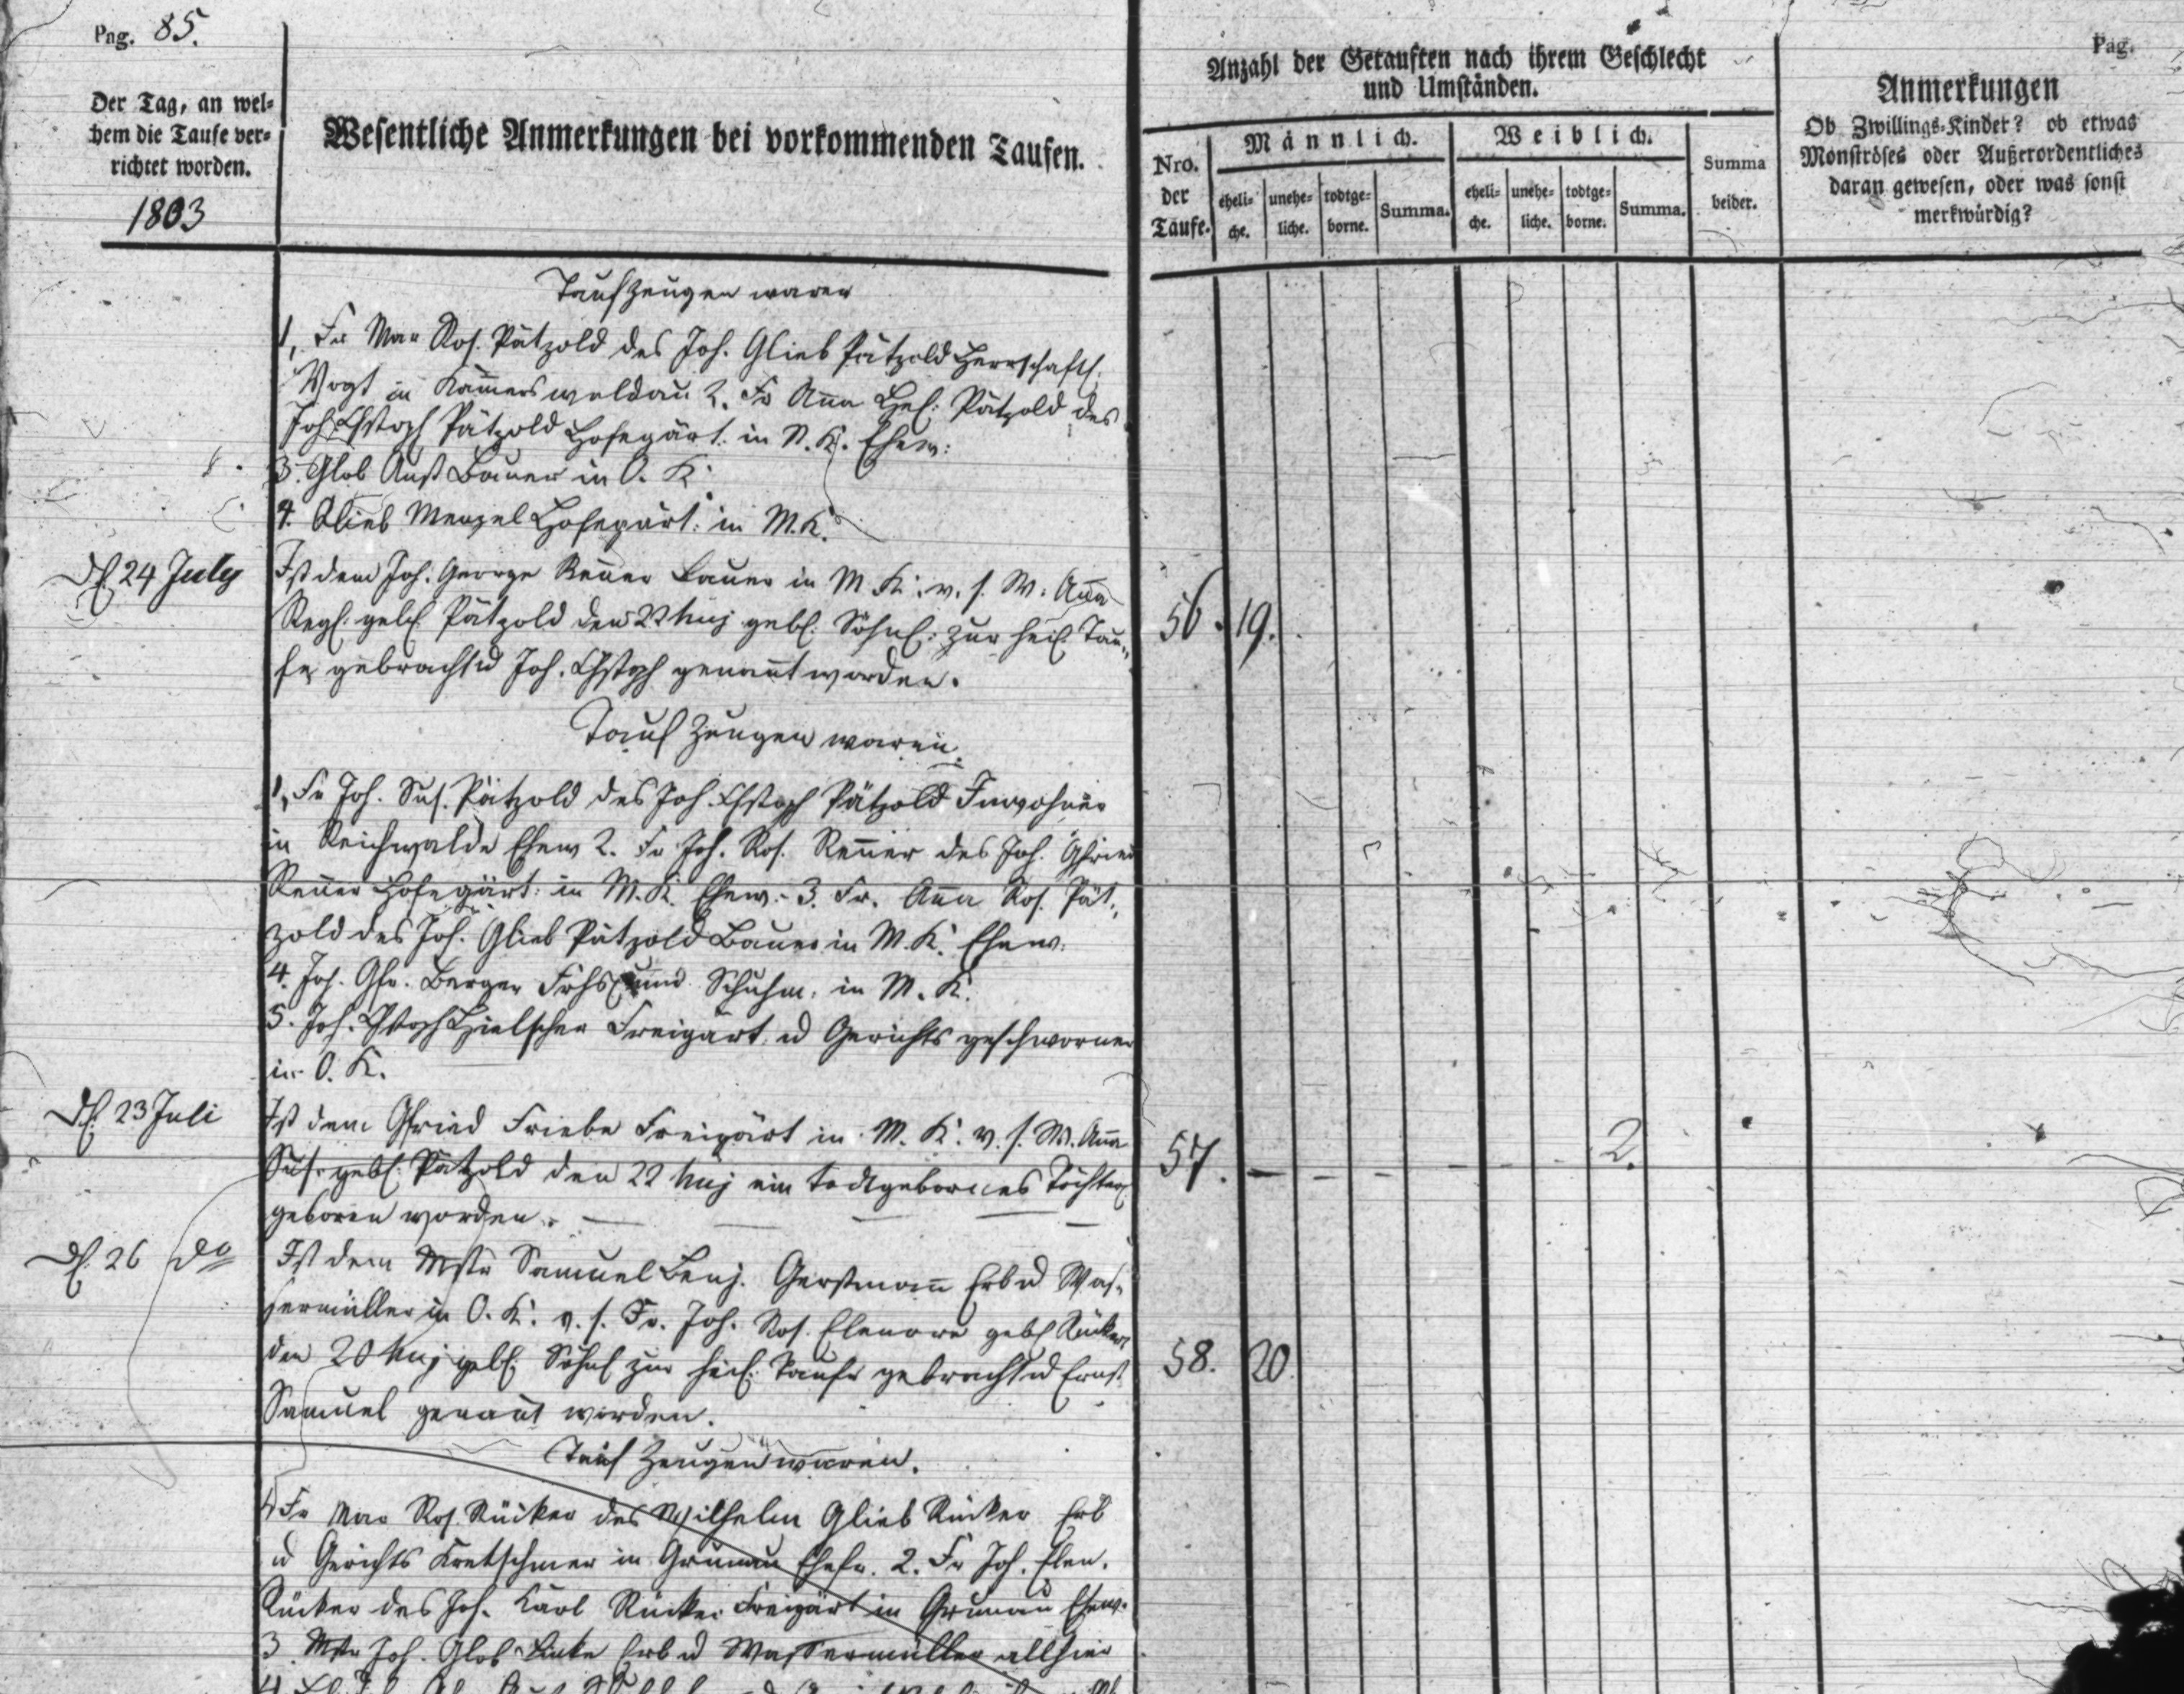 Pag. 85.
Pag.
Der Tag, an wel-
chem die Taufe ver-
richtet worden.
1803
Wesentliche Anmerkungen bei vorkommenden Taufen.
Anzahl der Getauften nach ihrem Geschlecht
und Umständen.
Nro.
der
Taufe.
Männlich.
eheli-
che.
unehe-
liche.
todtge-
borne.
Summa.
Weiblich.
eheli-
che.
unehe-
liche.
todtge-
borne.
Summa.
Summa
beider.
Anmerkungen
Ob Zwillings-Kinder? ob etwas
Monströses oder Außerordentliches
daran gewesen, oder was sonst
merkwürdig?
Taufzeugen waren
1, Fr Mar Ros. Pätzold des Joh. Glieb Pätzold Herrschaftl.
Vogt in Kam̅erswaldau 2. Fr An̅a Hel: Pätzold des
Joh Chstoph Pätzold Hofegärt. in N. K. Ehew:
3. Glob Bauer in O. K.
4. Glieb Menzel Hofegärt: in M. K.
24 July
Ist dem Joh. George Ren̅er Bauer in M. K. v. s. W. An̅a
geb. Pätzold den 22 huj geb. Söhnl: zur heil. Tau-
fe gebracht u Joh. Chstoph genan̅t worden.
56. 19.
Tauf Zeugen waren
1, Fr Joh. Sus. Pätzold des Joh. Chstoph Pätzold Inwohner
in Reichwalde Ehew 2. Fr Joh. Ros. Ren̅er des Joh. Gfried
Ren̅er Hofegärt: in M. K. Ehew. 3. Fr. An̅a Ros. Pät-
zold des Joh. Glieb Pätzold Bauer in M. K. Ehew.
4. Joh. Gfr. Berger und Schuhm. in M. K.
5. Joh. Chstoph Hielscher Freigärt. u Gerichts geschworner
in O. K.
23 Juli
Ist dem Gfried Friebe Freigärt in M. K. v. s. W. An̅a
Sus. geb. Pätzold den 22 huj ein todtgebornes Töchterl
geboren worden.
57. 2.
26 do
Ist dem Mstr Samuel Benj. Gerstman̅ Erb u Was-
sermüller in O. K. v. s. Fr. Joh. Ros. Elenore geb Rücker
den 20 huj geb. Söhnl zur heil. Taufe gebracht u Ernst
Samuel genan̅t worden.
58. 20.
Tauf Zeugen waren.
1, Fr Mar Ros Rücker des Wilhelm Glieb Rücker Erb
u Gerichts Kretschmer in Grunau Ehefr. 2. Fr Joh. Elen.
Rücker des Joh. Karl Rücker Freigärt in Grunau Ehew.
3. Mstr Joh. Glob Linke Erb u Wassermüller allhier